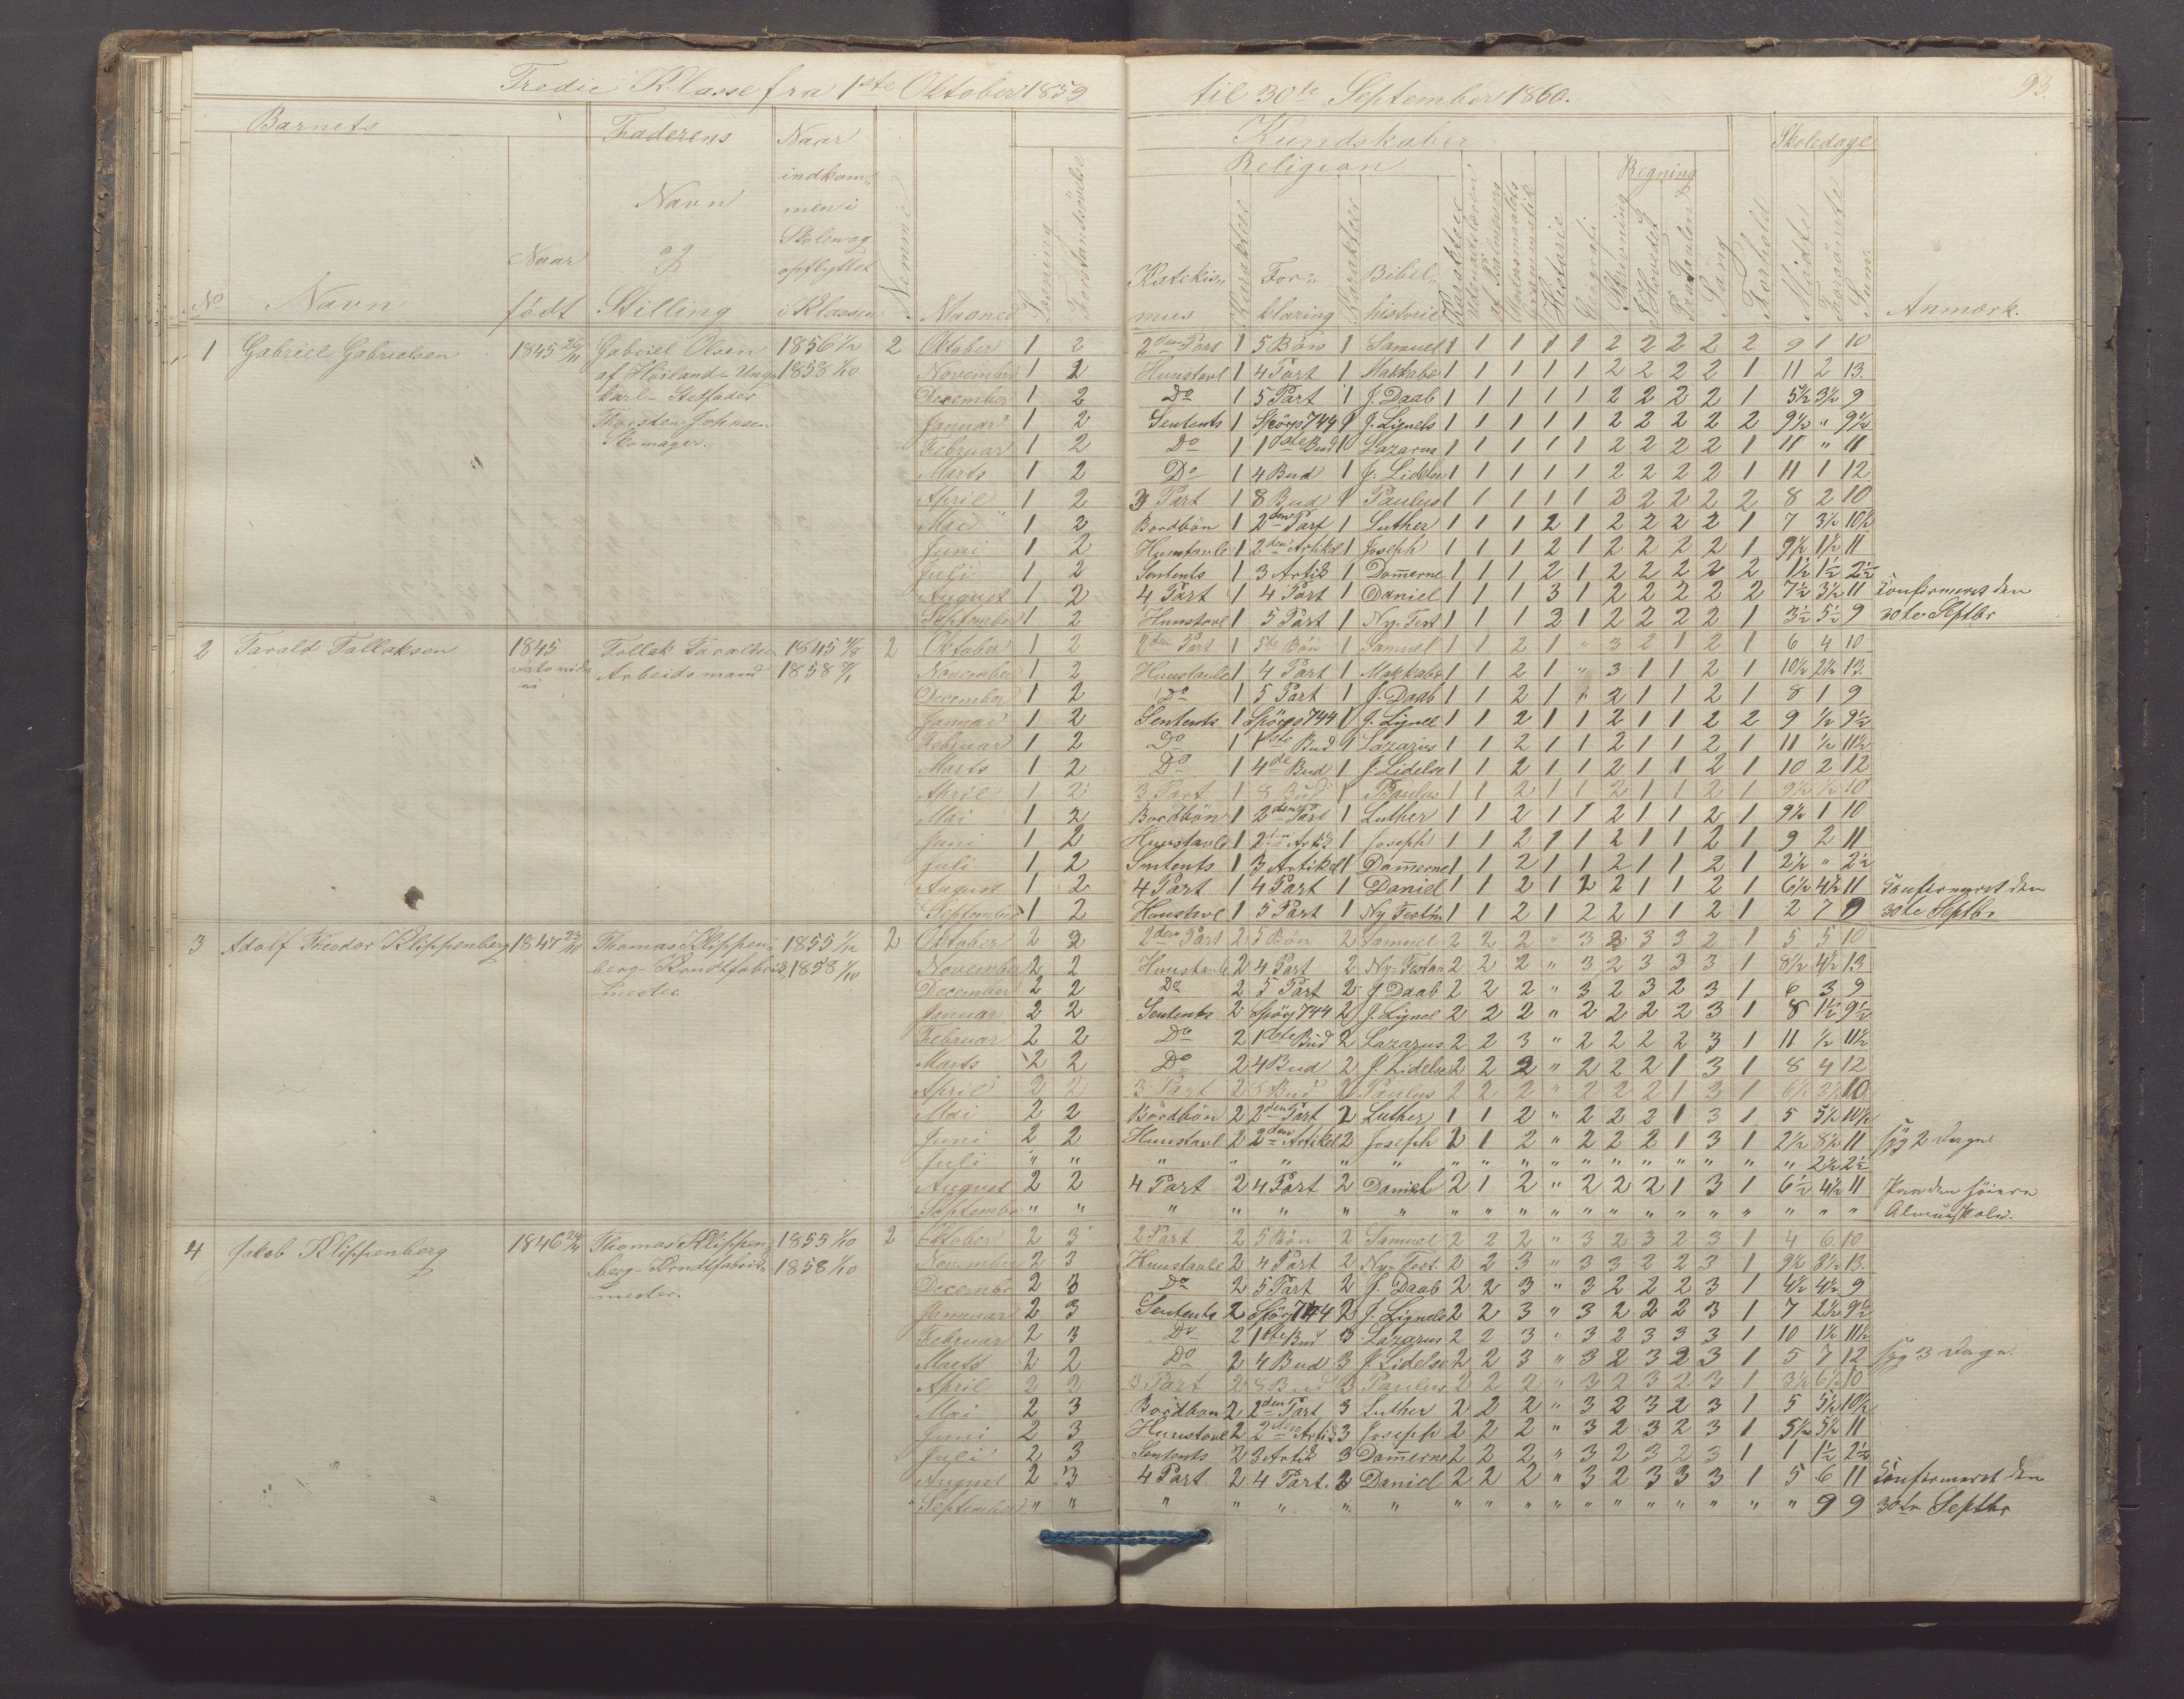 Tredie Klasse fra 1ste Oktober 1859 til 30te September 1860.
93.
Barnets
Faderens
Naar indkommen i Skolen og opflyttet i Klassen
Kundskaber
Religion
Regning
Skoledage
No
Navn
Naar født
Navn og Stilling
Nemme
Maaned
Læsning
Forstandsøvelse
Katekismus
Karakteer
Forklaring
Karakteer
Bibelhistorie
Karakteer
Historie
Geografi
Skrivning
I Hovedet
Paa Tavlen
Sang
Forhold
Mødte
Forsømte
Sum
Anmærk.
1 Gabriel Gabrielsen 1845 Gabriel Olsen 1856 1/2 2 Oktober 1 2 2den Part 1 5 Bön 1 Samuel 1 1 1 1 1 2 2 2 2 2 9 1 10
af Höiland - Ung- 1858 1/10 November 1 2 Huustavl 1 4 Part 1 Makkabæ 1 1 1 1 1 2 2 2 2 1 11 2 13
karl - Stedfader December 1 2 Do 1 5 Part 1 J. Daab 1 1 1 1 1 2 2 2 2 1 5½ 3½ 9
Thorsten Johnsen Januar 1 2 Sentents 1 Spörgs 744 1 J. Lignels 1 1 1 1 1 2 2 2 2 2 9½ " 9½
Skomager. Februar 1 2 Do 1 1ste Bud 1 Lazarus 1 1 1 1 1 2 2 2 2 1 11 " 11
Marts 1 2 Do 1 4 Bud 1 J. Lidelse 1 1 1 1 1 2 2 2 2 1 11 1 12
April 1 2 3 Part 1 8 Bud 1 Paulus 1 1 1 1 1 3 2 2 2 2 8 2 10
Mai 1 2 Bordbön 1 2den Part 1 Luther 1 1 1 2 1 2 2 2 2 1 7 3½ 10½
Juni 1 2 Huustavle 1 2den Artikel 1 Joseph 1 1 1 2 1 2 2 2 2 1 9½ 1½ 11
Juli 1 2 Sentents 1 3 Artik 1 Dommerne 1 1 1 2 1 2 2 2 2 2 1½ 1½ 2½
August 1 2 4 Part 1 4 Part 1 Daniel 1 1 1 3 1 2 2 2 2 2 7½ 3½ 11 Confirmeret den
September 1 2 Huustavl 1 5 Part 1 Ny-Test 1 1 1 3 1 2 2 2 2 1 3½ 5½ 9 30te Septbr
2 Tarald Tallaksen 1845 Tollak Taraldsen 2 Oktober 1 2 2den Part 1 5te Bön 1 Samuel 1 1 2 1 " 3 2 1 2 1 6 4 10
Arbeidsmand 1858 November 1 2 Huustavle 1 4 Part 1 Makkabæ 1 1 2 1 " 3 1 1 2 1 10½ 2½ 13
December 1 2 Do 1 5 Part 1 J. Daab 1 1 2 1 " 2 1 1 2 1 8 1 9
Januar 1 2 Sentents 1 Spörgs 744 1 J. Lignel 1 1 2 1 1 2 1 1 2 2 9 ½ 9½
Februar 1 2 Do 1 1ste Bud 1 Lazarus 1 1 2 1 1 2 1 1 2 1 11 ½ 11½
Marts 1 2 Do 1 4de Bud 1 J. Lidelse 1 1 2 1 1 2 1 1 2 1 10 2 12
April 1 2 3 Part 1 8 Bud 1 Paulus 1 1 2 1 1 2 1 1 2 1 9½ ½ 10
Mai 1 2 Bordbön 1 2den Part 1 Luther 1 1 2 1 1 2 1 1 2 1 9½ 1 10
Juni 1 2 Huustavle 1 2den Artik 1 Joseph 1 1 2 1 1 2 1 1 2 1 9 2 11
Juli 1 2 Sentents 1 3 Artikel 1 Dommerne 1 1 2 1 1 2 1 1 2 1 2½ " 2½
August 1 2 4 Part 1 4 Part 1 Daniel 1 1 2 1 2 2 1 1 2 1 6½ 4½ 11 Confirmeret den
September 1 2 Huustavl 1 5 Part 1 Ny Test 1 1 2 1 2 2 1 1 2 1 2 7 9 30te Septbr
3 Adolf Theodor Klippenberg 1847 Thomas Klippen- 1855 2 Oktober 2 2 2den Part 2 5 Bön 2 Samuel 2 2 2 " 3 3 3 3 2 1 5 5 10
berg - Krudtfabrik- 1858 1/10 November 2 2 Huustavle 2 4 Part 2 Ny-Testam 2 2 2 " 3 2 3 3 3 1 8½ 4½ 13
mester. December 2 2 Do 2 5 Part 2 J. Daab 2 2 2 " 3 2 3 2 3 1 6 3 9
Januar 2 2 Sentents 2 Spörg 744 2 J. Lignel 2 2 2 " 2 2 2 2 3 1 8 1½ 9½
Februar 2 2 Do 2 1ste Bud 2 Lazarus 2 2 3 " 2 2 2 2 3 1 11 ½ 11½
Marts 2 2 Do 2 4 Bud 2 J. Lidelse 2 2 2 " 2 2 2 1 3 1 8 4 12
April 2 2 3 Part 2 8 Bud 2 Paulus 2 2 2 " 2 2 2 1 3 1 6½ 3½ 10
Mai 2 2 Bordbön 2 2den Part 2 Luther 1 1 2 " 2 2 2 1 3 1 5 5½ 10½
Juni 2 2 Huustavl 2 2den Artikel 2 Joseph 2 1 2 " 2 2 2 1 3 1 2½ 8½ 11 syg 2 Dage
Juli " " " " " " " " " " " " " " " " " " 2½ 2½
August 2 2 4 Part 2 4 Part 2 Daniel 2 1 2 " 2 2 2 1 3 1 6½ 4½ 11 Paa den höiere
September " " " " " " " " " " " " " " " " " " " " Almueskole.
4 Jakob Klippenberg 1846 Thomas Klippen- 1855 1/10 2 Oktober 2 3 2 Part 2 5 Bön 2 Samuel 2 2 2 " 3 2 3 2 3 1 4 6 10
berg - Krudtfabrik- 1858 1/10 November 2 3 Huustavle 2 4 Part 2 Ny-Test. 2 2 3 " 3 3 2 2 3 1 9½ 3½ 13
mester. Decembr 2 3 Do 2 5 Part 2 J. Daab 2 2 3 " 3 2 2 2 3 1 4½ 4½ 9
Januar 2 3 Sentents 2 Spörg 744 2 J. Lignels 2 2 3 " 3 2 2 2 3 1 7 2½ 9½
Februar 2 3 Do 2 1ste Bud 3 Lazarus 2 2 3 " 3 2 3 3 3 1 10 1½ 11½
Marts 2 2 Do 2 4 Bud 3 J. Lidelse 2 2 3 " 3 2 3 2 3 1 5 7 12 syg 3 Dage
April 2 2 3 Part 2 8 Bud 3 Paulus 2 2 2 " 3 2 3 2 3 1 3½ 6½ 10
Mai 2 3 Bordbön 2 2den Part 3 Luther 2 2 2 " 3 2 3 2 3 1 5 5½ 10½
Juni 2 3 Huustavl 2 2den Artik 3 Joseph 2 2 2 " 3 2 3 2 3 1 5½ 5½ 11
Juli 2 3 Sentents 2 3 Artik 3 Dommerne 2 2 2 " 3 2 3 2 3 1 1 1½ 2½
August 2 3 4 Part 2 4 Part. 3 Daniel 2 2 2 " 3 2 3 3 3 1 5 6 11 Confirmeret den
September " " " " " " " " " " " " " " " " " " 9 9 30te Septbr